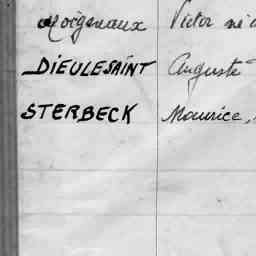 Moigneaux Victor né
DIEULESAINT Auguste
STERBECK Maurice,